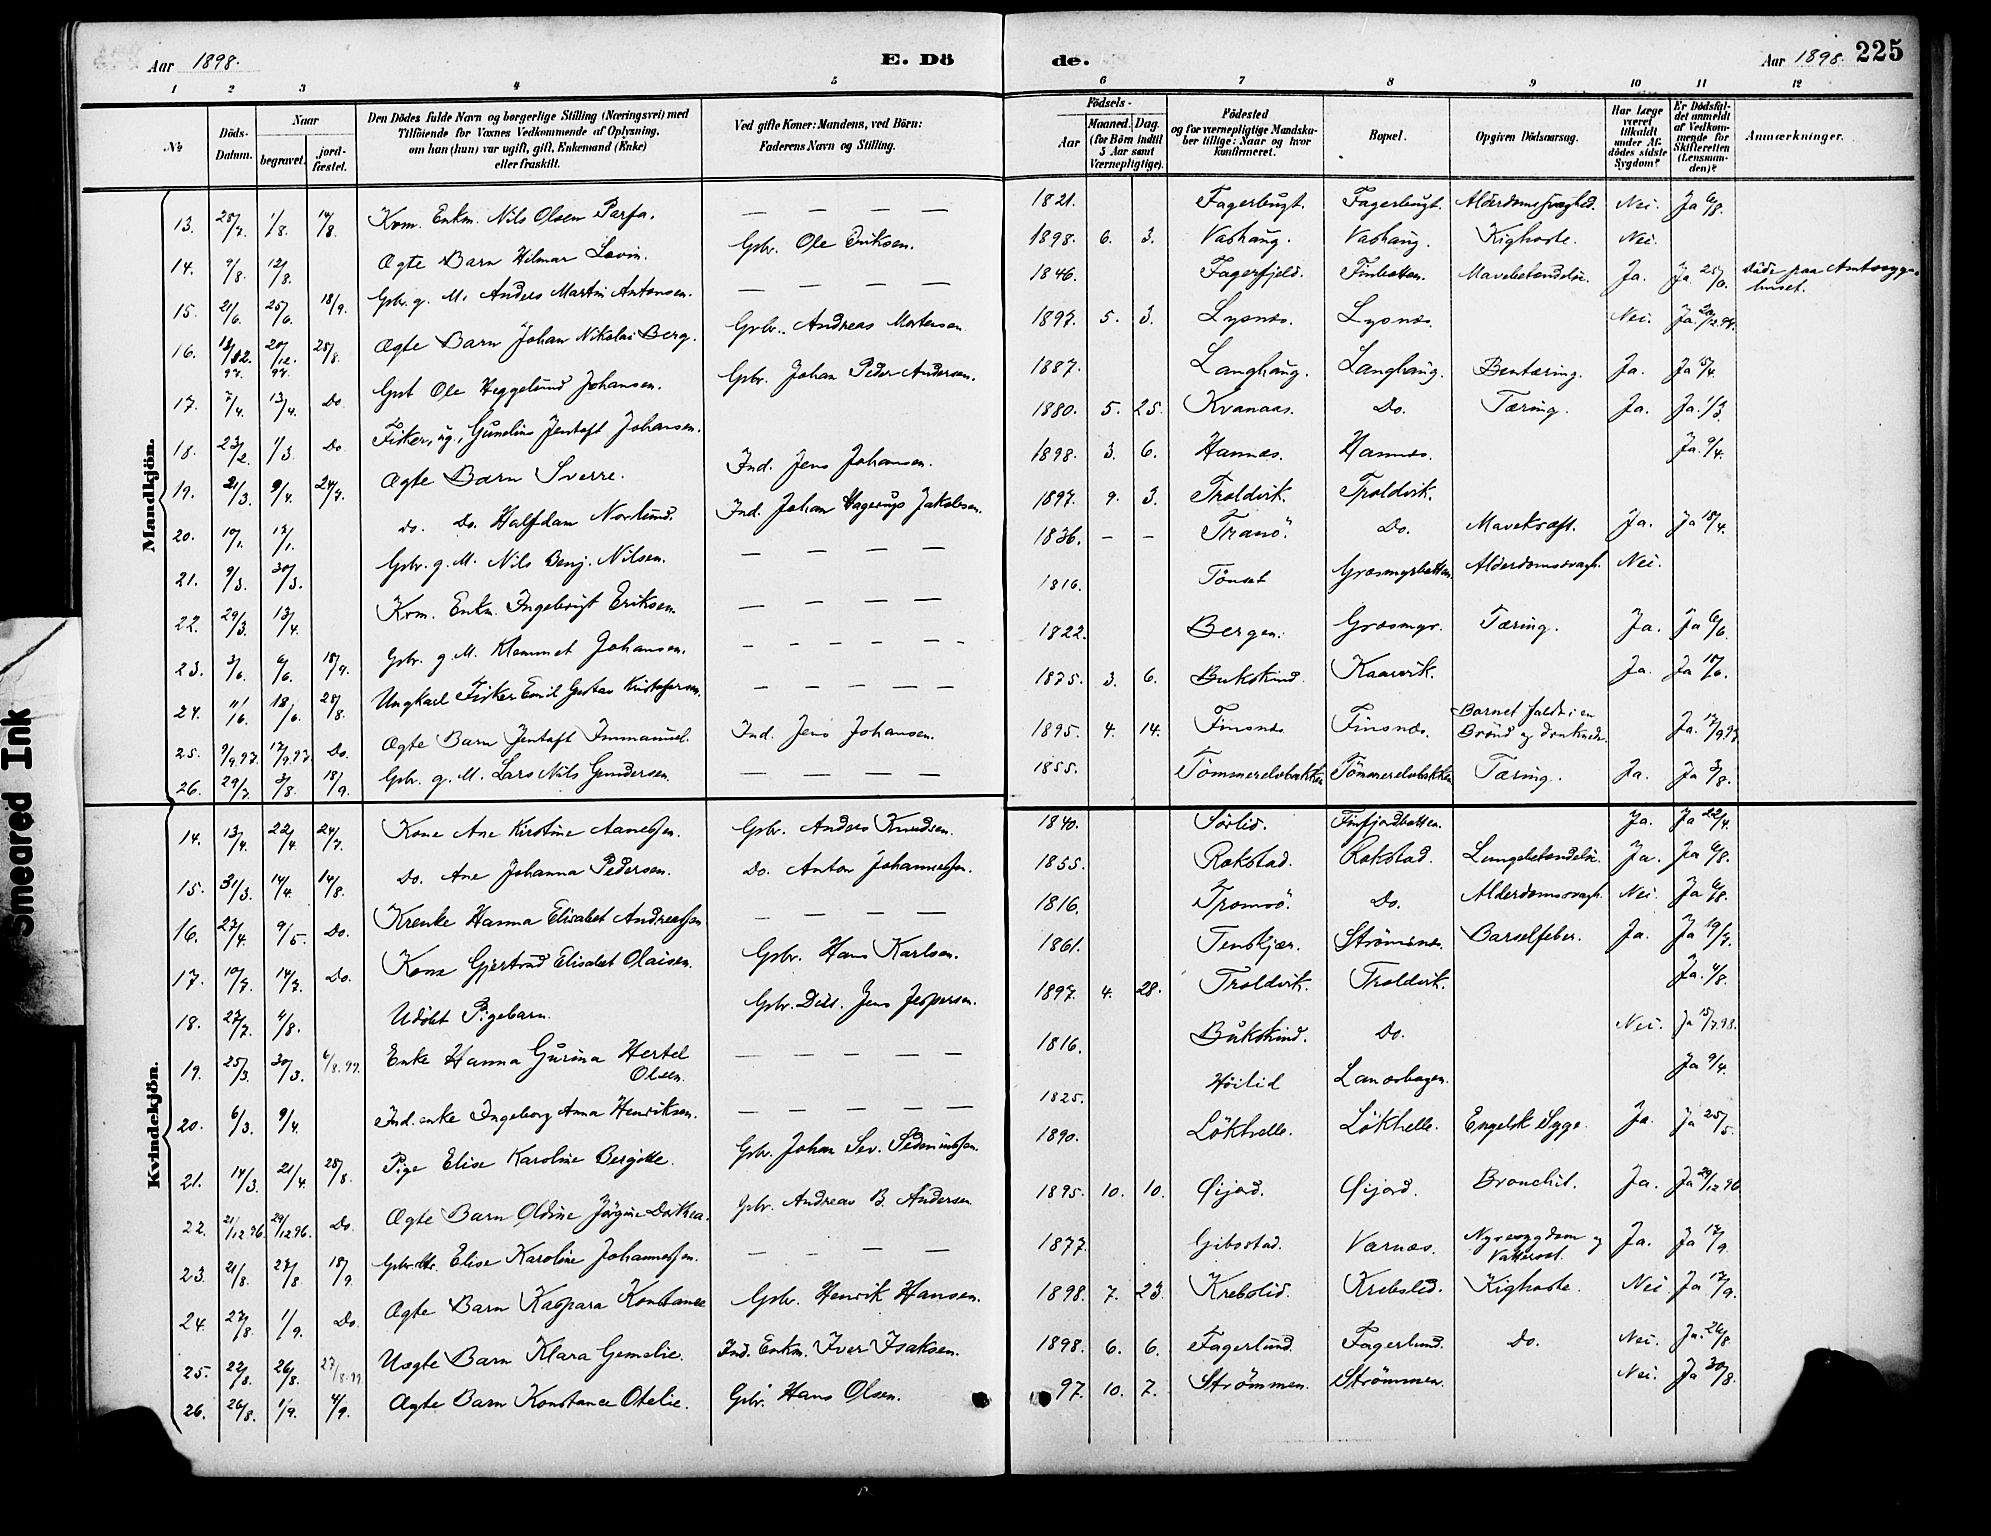 Smeared Ink
Aar 1898. E. Dö de. Aar 1898. 225
1 2 3 4 5 6 7 8 9 10 11 12
No
Döds-Datum.
Naar
begravet. jord-fæstet.
Den Dödes fulde Navn og borgerlige Stilling (Næringsvei) med
Tilföiende for Voxnes Vedkommende af Oplysning,
om han (hun) var ugift, gift, Enkemand (Enke)
eller fraskilt.
Ved gifte Koner: Mandens, ved Börn:
Faderens Navn og Stilling.
Födsels-
Aar
Maaned. Dag.
(for Börn indtil
5 Aar samt
Værnepligtige).
Födested
og for værnepligtige Mandska-
ber tillige: Naar og hvor
konfirmeret.
Bopæl.
Opgiven Dödsaarsag.
Har Læge
været
tilkaldt
under Af-
dödes sidste
Sygdom?
Er Dödsfal-
det anmeldt
af Vedkom-
mende for
Skifteretten
(Lensman-
den)?
Anmærkninger.
Mandkjön.
13. 28/7. 1/8. 14/8. Kvm. Enkm. Nils Olsen Parfa. — — — — 1821. Fagerbugt. Fagerbugt. Alderdomssvaghed. Nei. Ja 6/8.
14. 9/8. 12/8. Ægte Barn Hilmar Lovin. Gbr. Ole Eriksen. 1898. 6. 3. Vashaug. Vashaug. Kighoste. Nei.
15. 21/6. 25/6. 18/9. Gbr. g. M. Anders Martin Antonsen. — — — — 1846. Fagerfjeld. Finbotten. Mavebetændelse. Ja. Ja 25/6. döde paa Amtssyge-
huset.
16. 18/12.97. 20/12.97. 28/8. Ægte Barn Johan Nikolai Berg. Gbr. Andreas Mortensen. 1897. 5. 3. Lysnes. Lysnes. Nei. Ja. 20/12.97.
17. 7/4. 13/4. Do. Gut Ole Heggelund Johansen. Gbr. Johan Peder Andersen. 1887. Langhaug. Langhaug. Bentæring. Ja. Ja 15/4.
18. 23/2. 1/3. Do. Fisker, ug., Gunelius Jentoft Johansen. 1880. 5. 25. Kvanaas. Do. Tæring. Ja. Ja. 1/3.
19. 21/3. 9/4. 24/7. Ægte Barn Sverre. Ind. Jens Johansen. 1898. 3. 6. Hannæs. Hannæs. Ja. 9/4.
20. 10/1. 12/1. do. Do. Halfdan Norlund. Ind. Johan Hagerup Jakobsen. 1897. 9. 3. Troldvik. Troldvik.
21. 9/3. 30/3. Gbr. g. M. Nils Benj. Nilsen. — — — — 1836. — — Tranö. Do. Mavekræft. Ja. Ja 18/4.
22. 29/3. 13/4. Kvm. Enkm. Ingebrigt Eriksen. — — — — 1816. Tönset Græsmyrbotten. Alderdomssvagh. Nei.
23. 3/6. 6/6. 18/9. Gbr. g. M. Klemmet Johansen. — — — — 1822. Bergen. Græsmyr. Tæring. Ja. Ja 6/6.
24. 11/6. 18/6. 28/8. Ungkarl Fisker Emil Gustav Kristofersen. — — — — 1875. 3. 6. Bukskind. Kaarvik. Ja. Ja 18/6.
25. 9/9.97. 17/9.97. Do. Ægte Barn Jentoft Immanuel. Ind. Jens Johansen. 1895. 4. 14. Finsnes. Finsnæs. Barnet faldt i en
Brönd og druknede. Ja. 17/9.97.
26. 29/7. 3/8. 18/9. Gbr. g. M. Lars Nils Gundersen. — — — — 1855. Tömmerelvbakken Tömmerelvbakken Tæring. Ja. Ja 3/8.
Kvindekjön.
14. 13/4. 22/4. 24/7. Kone Ane Kirstine Aanessen. Gbr. Anders Knudsen. 1840. Sörlid. Finfjordbotten. Ja. Ja 22/4.
15. 31/3. 14/4. 14/8. Do. Ane Johanna Pedersen. Do. Anton Johannessen. 1855. Rokstad. Rokstad. Lungebetændelse. Ja. Ja 6/8.
16. 27/4. 9/5. Do. Krenke Hanna Elisabet Andreassen — — — — 1816. Tromsö. Do. Alderdomssvagh. Nei. Ja 6/8.
17. 10/7. 14/7. Do. Kone Gjertrud Elisabet Olaisen. Gbr. Hans Karlsen. 1861. Tenskjær. Strömsnes. Barselfeber. Ja. Ja 19/7.
18. 27/7. 4/8. Udöbt Pigebarn. Gbr. Jens Jespersen. 1897. 4. 28. Troldvik. Troldvik. Ja. 4/8.
19. 25/3. 30/3. 6/8.99. Enke Hanna Gurina Hertel
Olsen. — — — — 1816. Bukskind. Do. Nei. Ja 15/7.98.
20. 6/3. 9/4. Ind. enke Ingeborg Anna Henriksen. — — — — 1825. Höilid Lanesbogen. Ja 9/4.
21. 14/3. 21/4. 28/8. Pige Elise Karoline Bergitte. Gbr. Johan Sev. 1890. Lökhelle. Lökhelle. Engelsk Syge. Ja. Ja 25/5.
22. 21/12 96. 29/12 96. Do. Ægte Barn Oldine Jörgine Dorthea. Gbr. Andreas B. Andersen 1895. 10. 10. Öijord. Öijord. Bronchit. Ja. Ja 29/12 96
23. 21/8. 27/8 18/9. Gbr.dtr. Elise Karoline Johannessen. — — — — 1877. Gibostad. Værnæs. Nyresygdom og
Vattersot. Ja. Ja 17/9.
24. 27/8. 1/9. Do. Ægte Barn Kaspara Konstance Gbr. Henrik Hansen. 1898. 7. 23. Krebslid. Krebslid. Kighoste. Nei. Ja 17/9.
25. 22/8. 26/8. 27/8.99. Uægte Barn Klara Gemelie. Ind. Enkm. Iver Isaksen. 1898. 6. 6. Fagerlund. Fagerlund. Do. Nei. Ja. 26/8
26. 26/8. 1/9. 4/9. Ægte Barn Konstance Otelie. Gbr. Hans Olsen. 97. 10. 7. Strömmen. Strömmen. Nei. Ja 30/8.